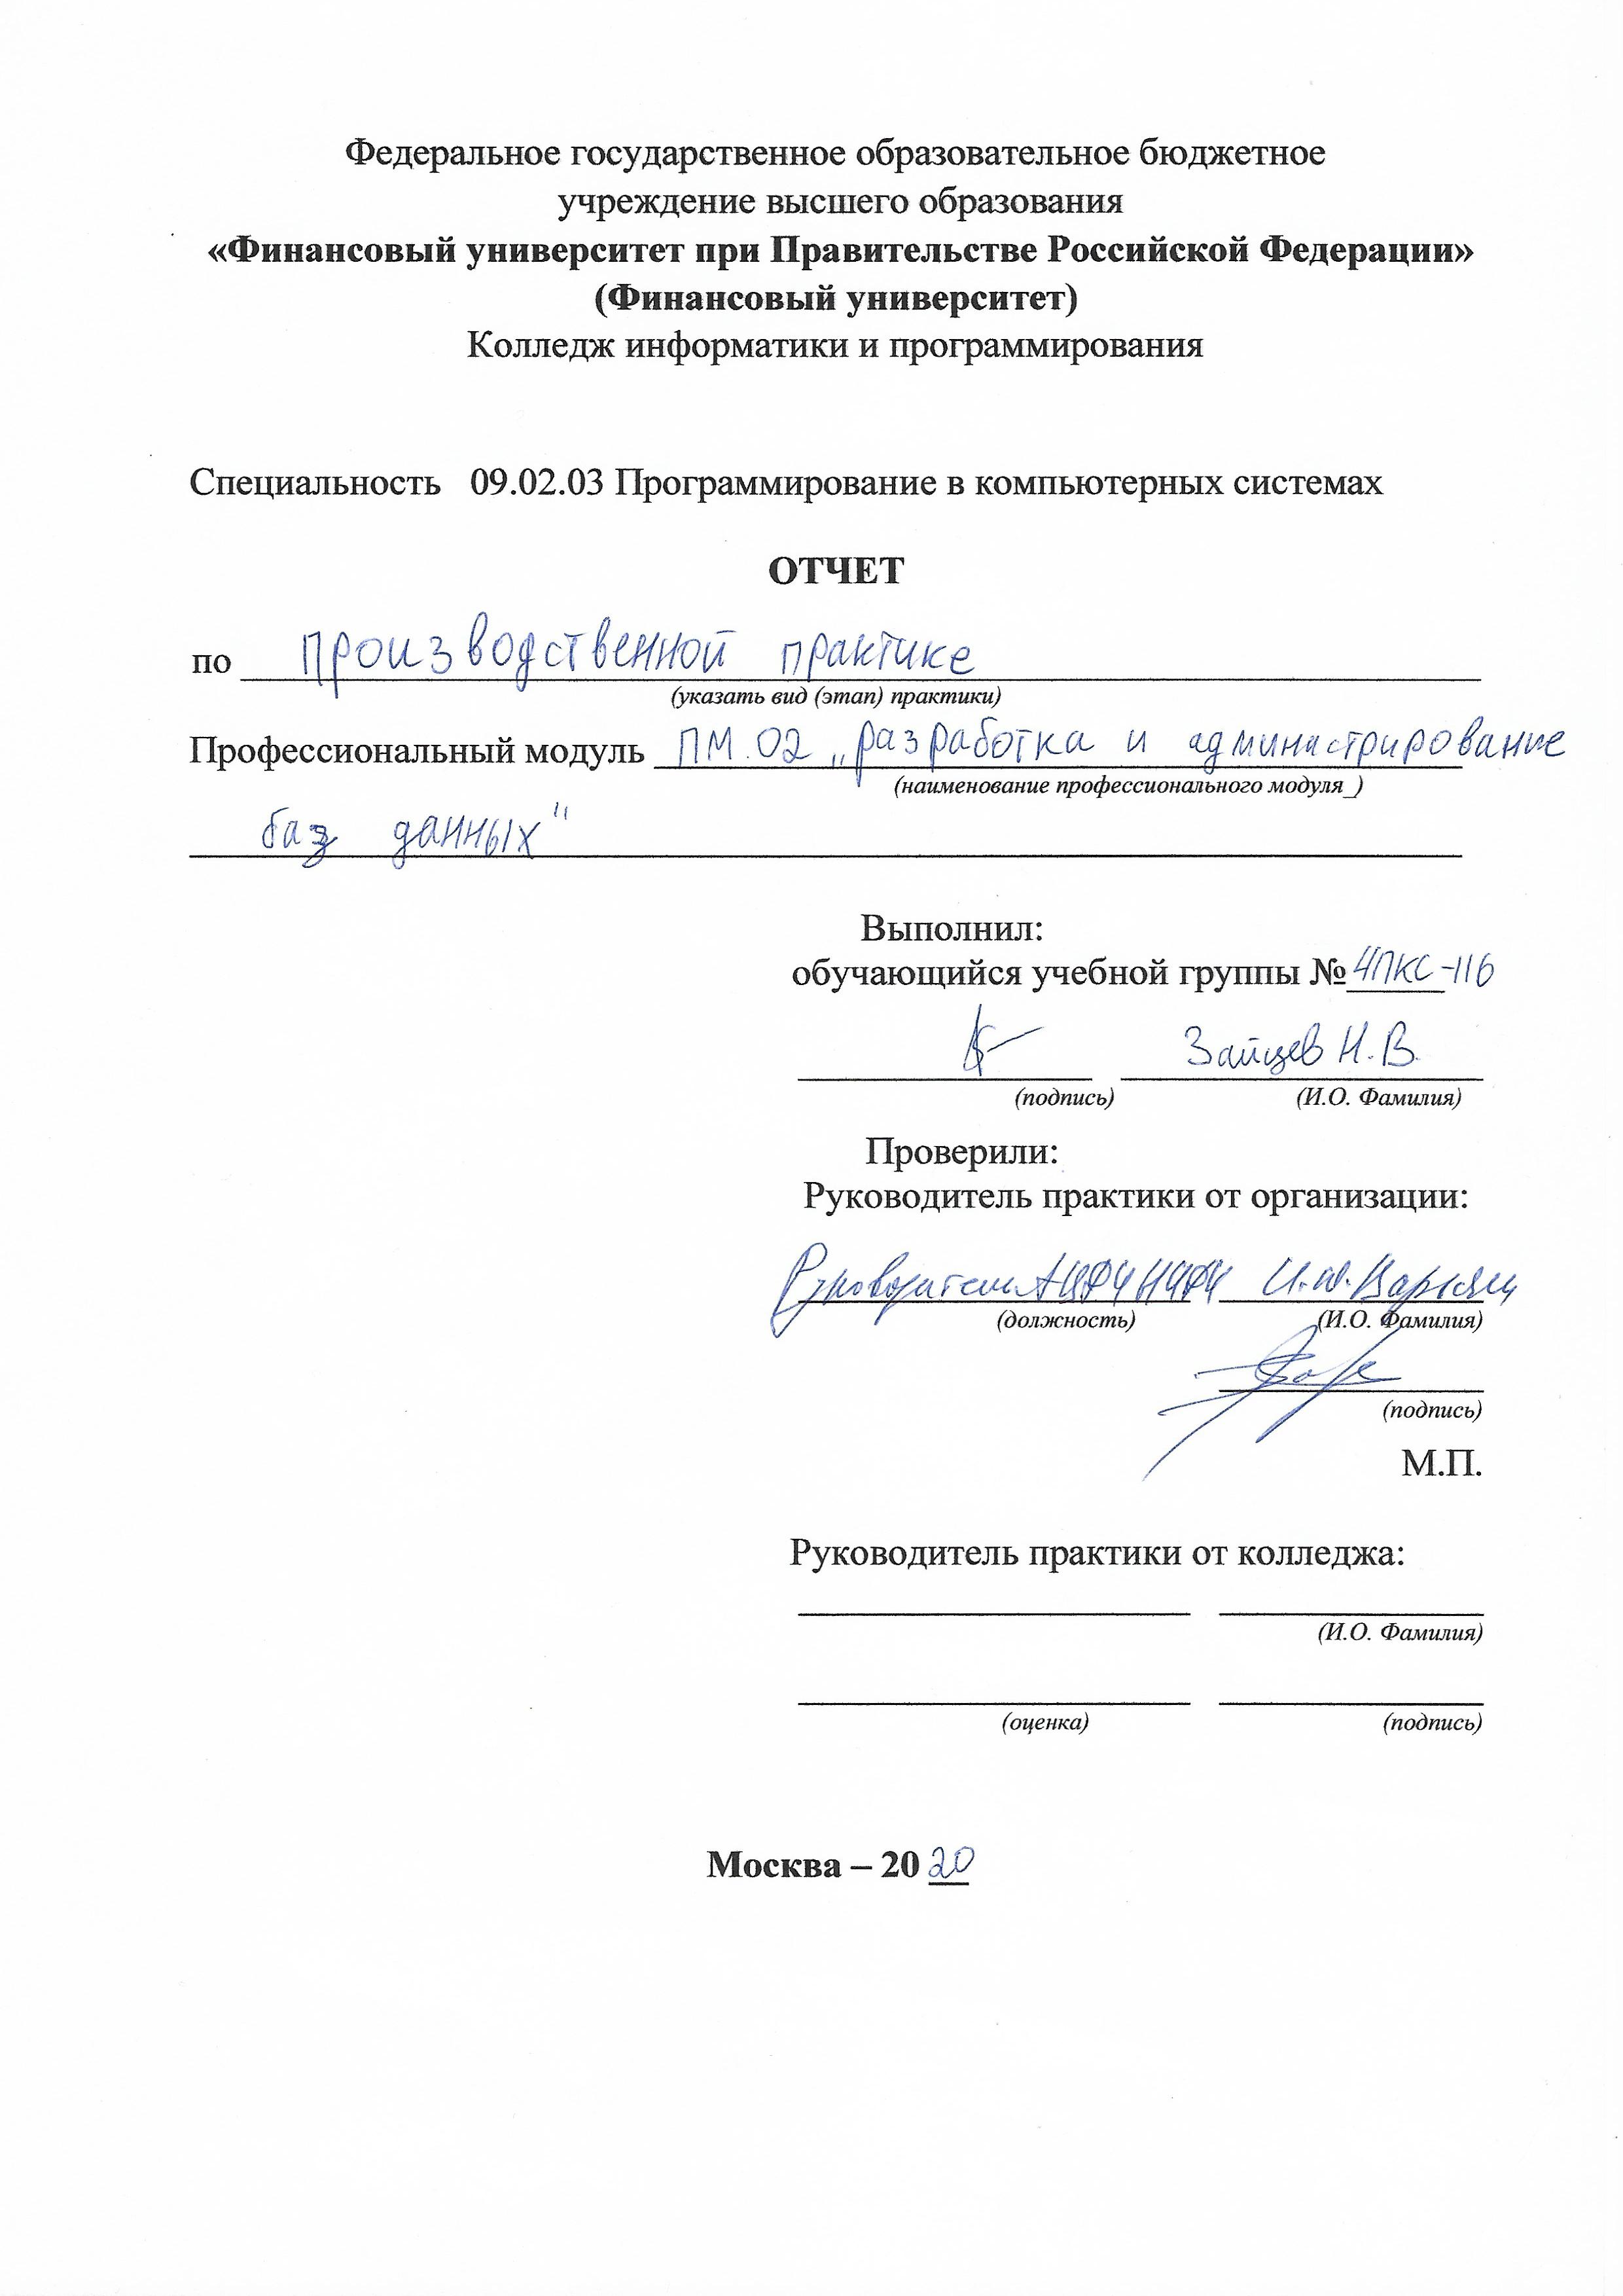 Федеральное государственное образовательное бюджетное
учреждение высшего образования
«Финансовый университет при Правительстве Российской Федерации»
(Финансовый университет)
Колледж информатики и программирования
Специальность 09.02.03 Программирование в компьютерных системах
ОТЧЕТ
по производственной практике
(указать вид (этап) практики)
Профессиональный модуль ПМ.02 „разработка и администрирование
(наименование профессионального модуля_)
баз данных"
Выполнил:
обучающийся учебной группы №4ПКС-116
Зайцев Н.В.
(подпись) (И.О. Фамилия)
Проверили:
Руководитель практики от организации:
Руководитель
(должность) (И.О. Фамилия)
(подпись)
М.П.
Руководитель практики от колледжа:
(И.О. Фамилия)
(оценка) (подпись)
Москва – 2020